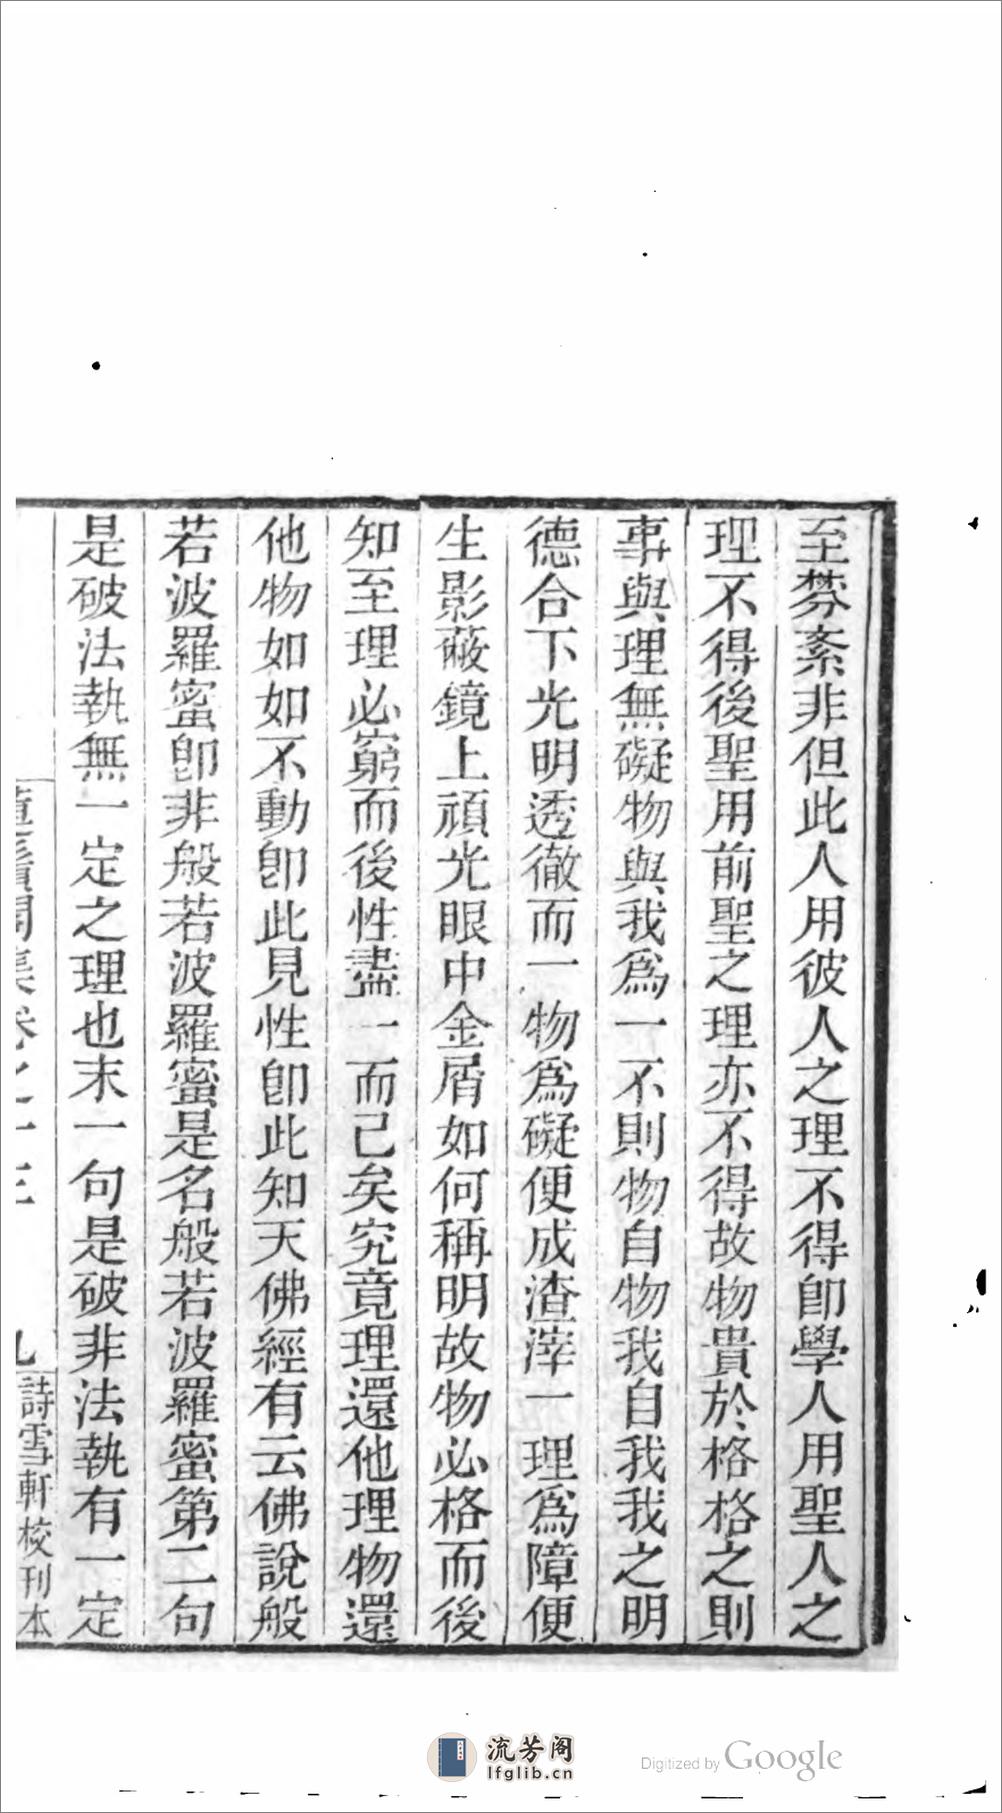 至棼紊非但此人用彼人之理不得卽學人用聖人之
理不得後聖用前聖之理亦不得故物貴於格格之則
事與理無礙物與我爲一不則物自物我自我我之明
德合下光明透徹而一物爲礙便成渣滓一理爲障便
生影蔽鏡上頑光眼中金屑如何稱明故物必格而後
知至理必窮而後性盡一而已矣究竟理還他理物還
他物如如不動卽此見性卽此知天佛經有云佛說般
若波羅蜜卽非般若波羅蜜是名般若波羅蜜第二句
是破法執無一定之理也末一句是破非法執有一定
集卷之十三
九
詩雪軒校刊本
流芳阁
lfglib.cn
Digitized by Google